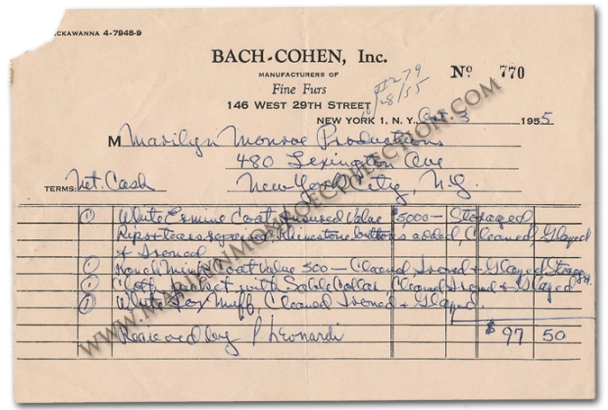 CKAWANNA 4-7948-9
BACH-COHEN, Inc.
MANUFACTURERS OF
Fine Furs
146 WEST 29TH STREET
#1279
10/28/55
Nº 770
NEW YORK 1, N. Y. Oct 3 1955
M Marilyn Monroe Productions
480 Lexington Ave
TERMS: Net. Cash New York City, N.Y.
1 White Ermine Coat Insured Value $5000— Storaged
Rips tears repaired Rhinestone buttons added, Cleaned Glazed
& Ironed
1 Mink Coat Value 500— Cleaned, Ironed & Glazed Storage
1 Cloth with Sable Collar, Cleaned Ironed & Glazed
1 White Fox Muff, Cleaned Ironed & Glazed
Received by P Leonardi $97 50
WWW.MARILYNMONROECOLLECTION.COM